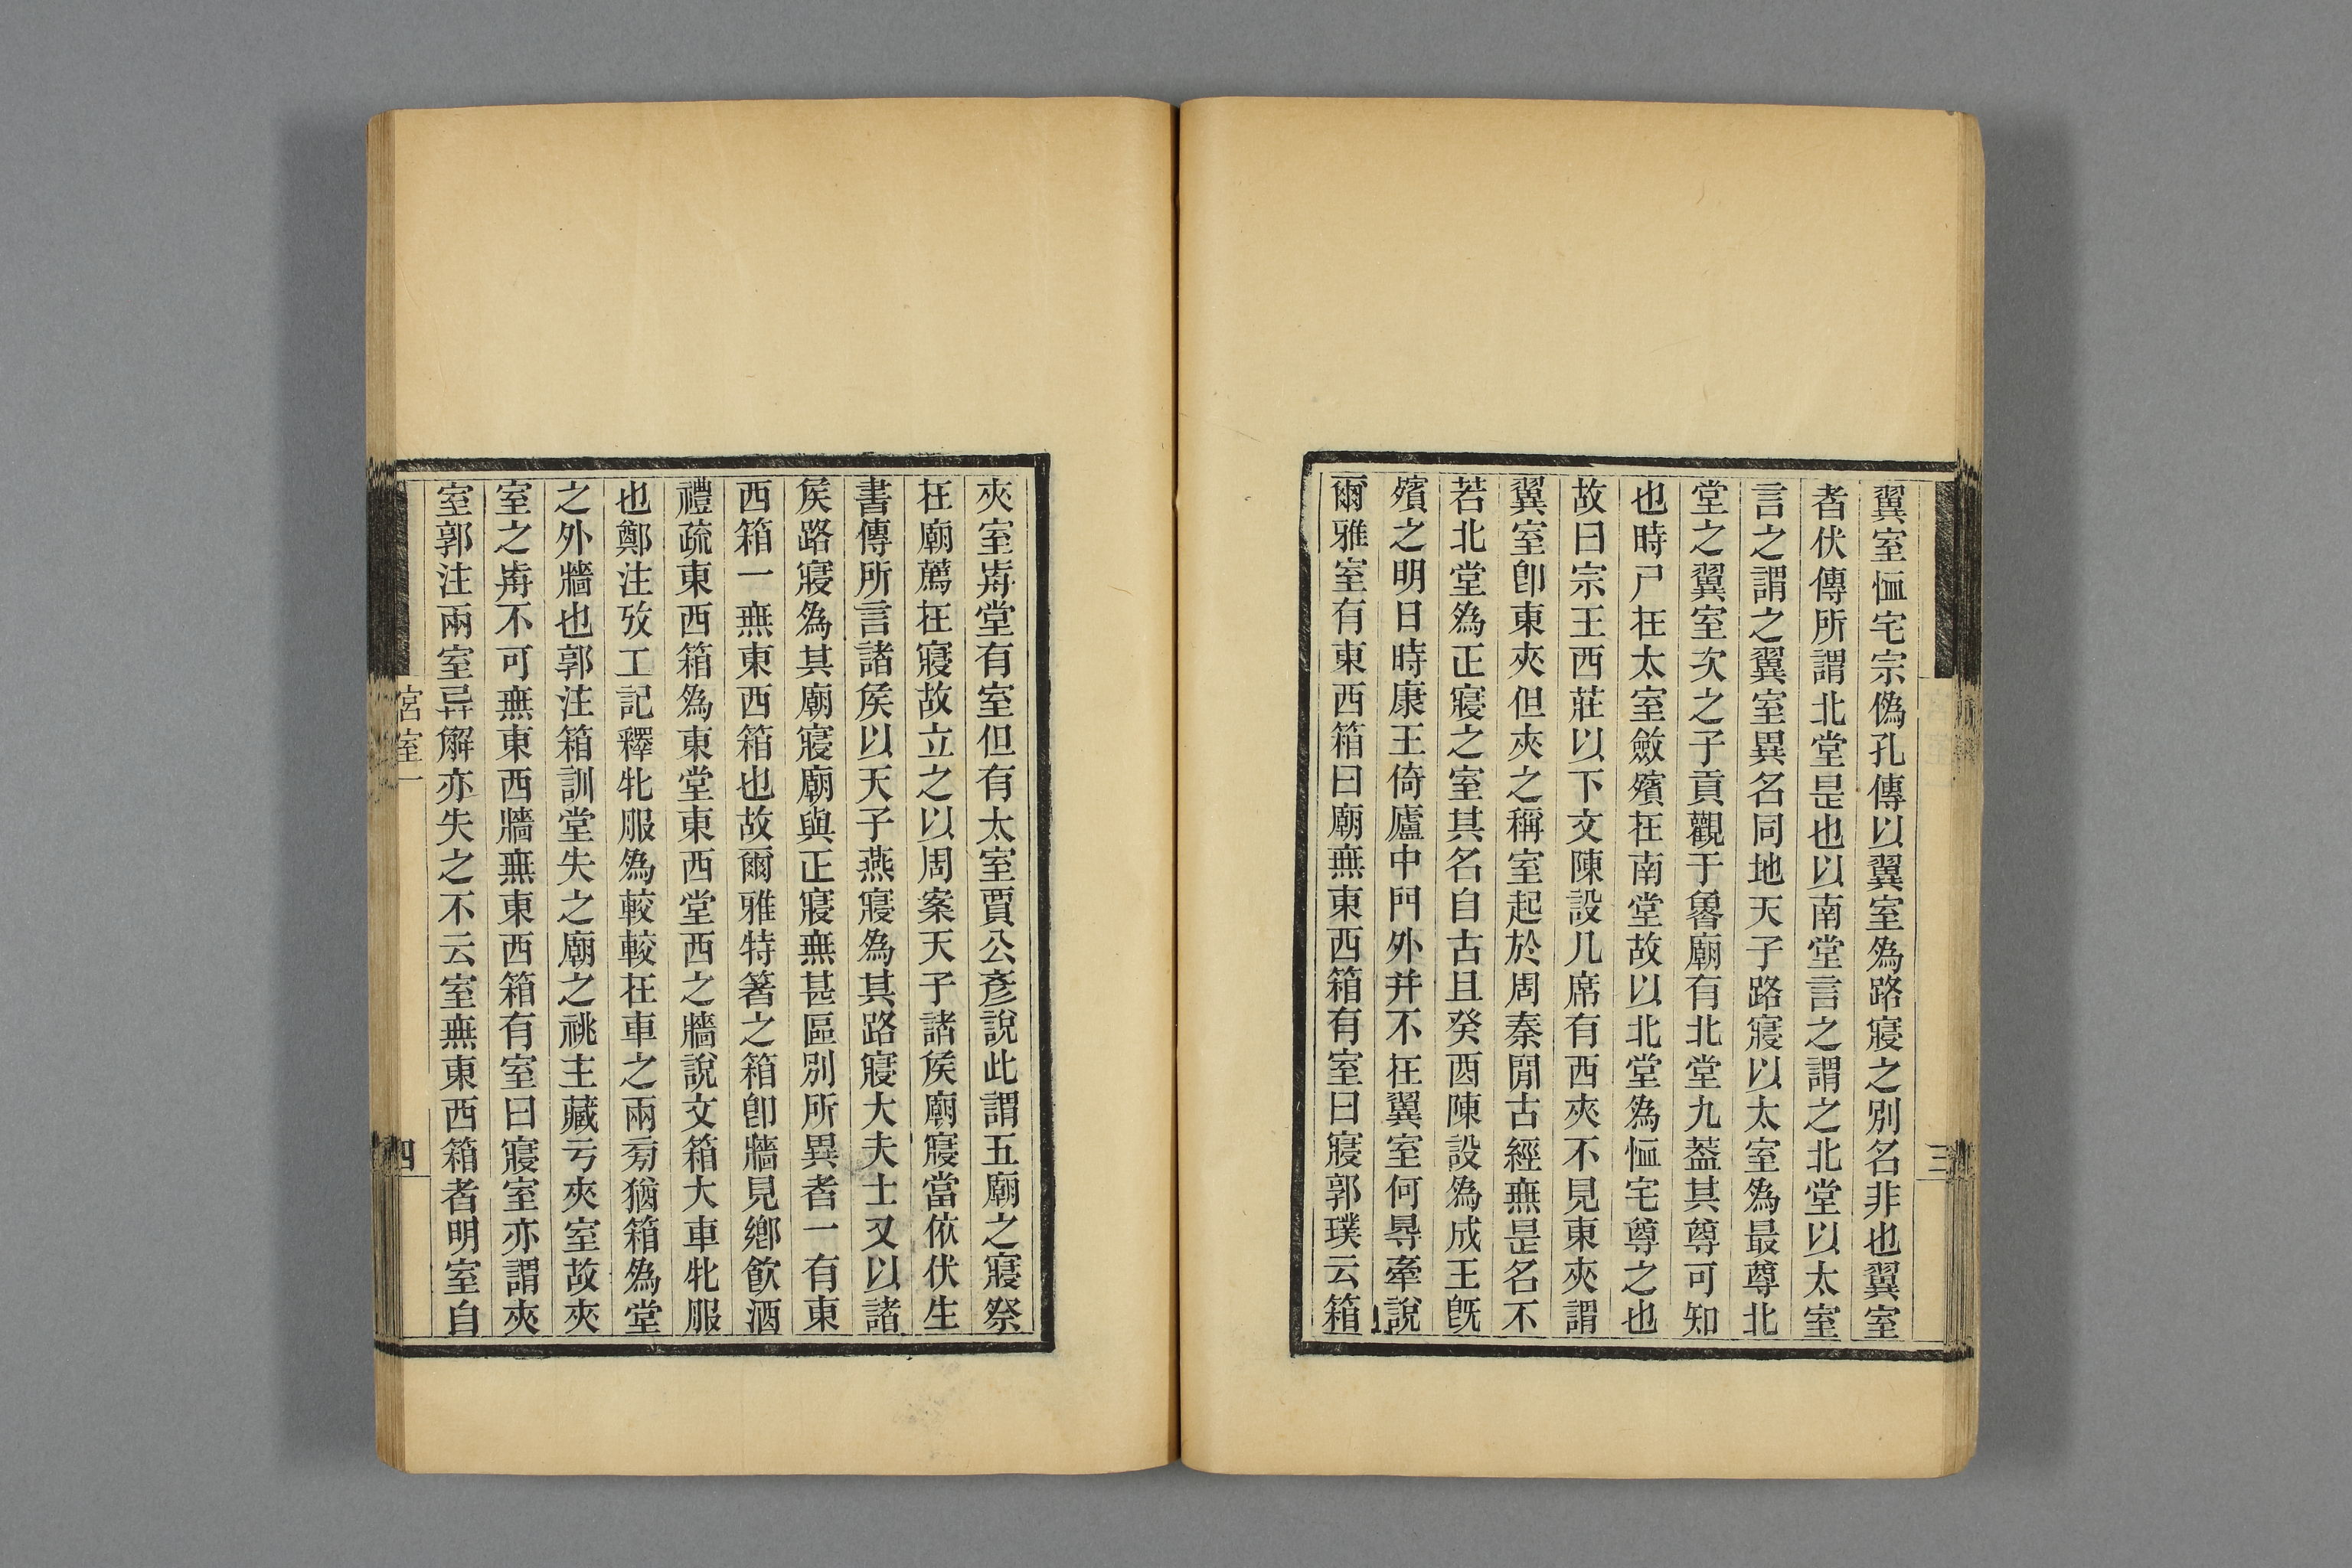 翼室恤宅宗僞孔傳以翼室爲路寢之別名非也翼室
者伏傳所謂北堂是也以南堂言之謂之北堂以太室
言之謂之翼室異名同地天子路寢以太室爲最尊北
堂之翼室次之子貢觀于魯廟有北堂九蓋其尊可知
也時尸在太室斂殯在南堂故以北堂爲恤宅尊之也
故曰宗王西莊以下文陳設几席有西夾不見東夾謂
翼室卽東夾但夾之稱室起於周秦閒古經無是名不
若北堂爲正寢之室其名自古且癸酉陳設爲成王旣
殯之明日時康王倚廬中門外并不在翼室何㝵牽說
爾雅室有東西箱曰廟無東西箱有室曰寢郭璞云箱
三
夾室歬堂有室但有太室賈公彥說此謂五廟之寢祭
在廟薦在寢故立之以周案天子諸矦廟寢當依伏生
書傳所言諸矦以天子燕寢爲其路寢大夫士又以諸
矦路寢爲其廟寢廟與正寢無甚區別所異者一有東
西箱一無東西箱也故爾雅特箸之箱卽牆見鄕飮酒
禮疏東西箱爲東堂東西堂西之牆說文箱大車牝服
也鄭注攷工記釋牝服爲較較在車之兩㫄猶箱爲堂
之外牆也郭注箱訓堂失之廟之祧主藏亏夾室故夾
室之歬不可無東西牆無東西箱有室曰寢室亦謂夾
室郭注兩室异解亦失之不云室無東西箱者明室自
宮室一
四